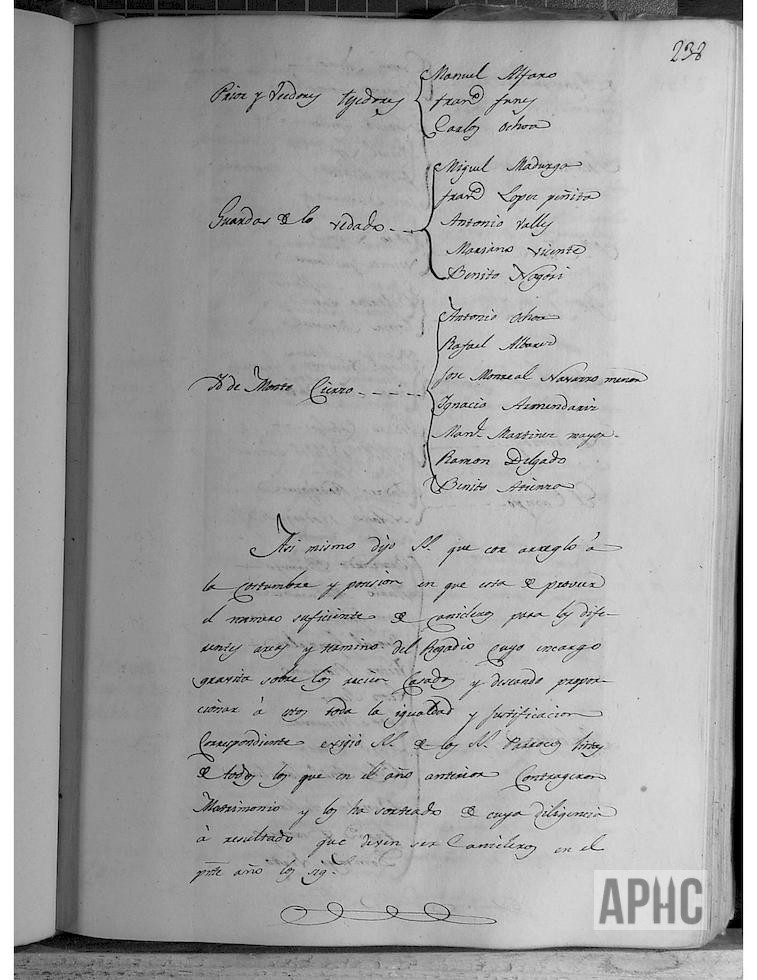 238
Prior y Veedores tejedores
Manuel Alfaro
Franco Funes
Carlos Ochoa
Guardas de lo vedado
Miguel Madurga
Franco Lopez peñita
Antonio Valles
Mariano Vicente
Benito Nogori
Yd de Monte Cierzo
Antonio Ochoa
Rafael Albarez
Jose Monreal Navarro menor
Ignacio Armendariz
Manl Martinez mayor
Ramon Delgado
Benito Atienza
Asi mismo dijo SS. que con arreglo a
la Costumbre y posesion en que esta de proveer
el numero suficiente de para los dife-
rentes aras y termino del Regadio cuyo encargo
gravita sobre los recien Casados y deseando propor-
cionar à estos toda la igualdad y justificacion
Correspondiente exijio SS. de los SS. Parrocos listas
de todos los que en el año anterior Contrageron
Matrimonio y los ha sorteado de cuya diligencia
à resultado que deven ser en el
pnte año los sig.s
APHC